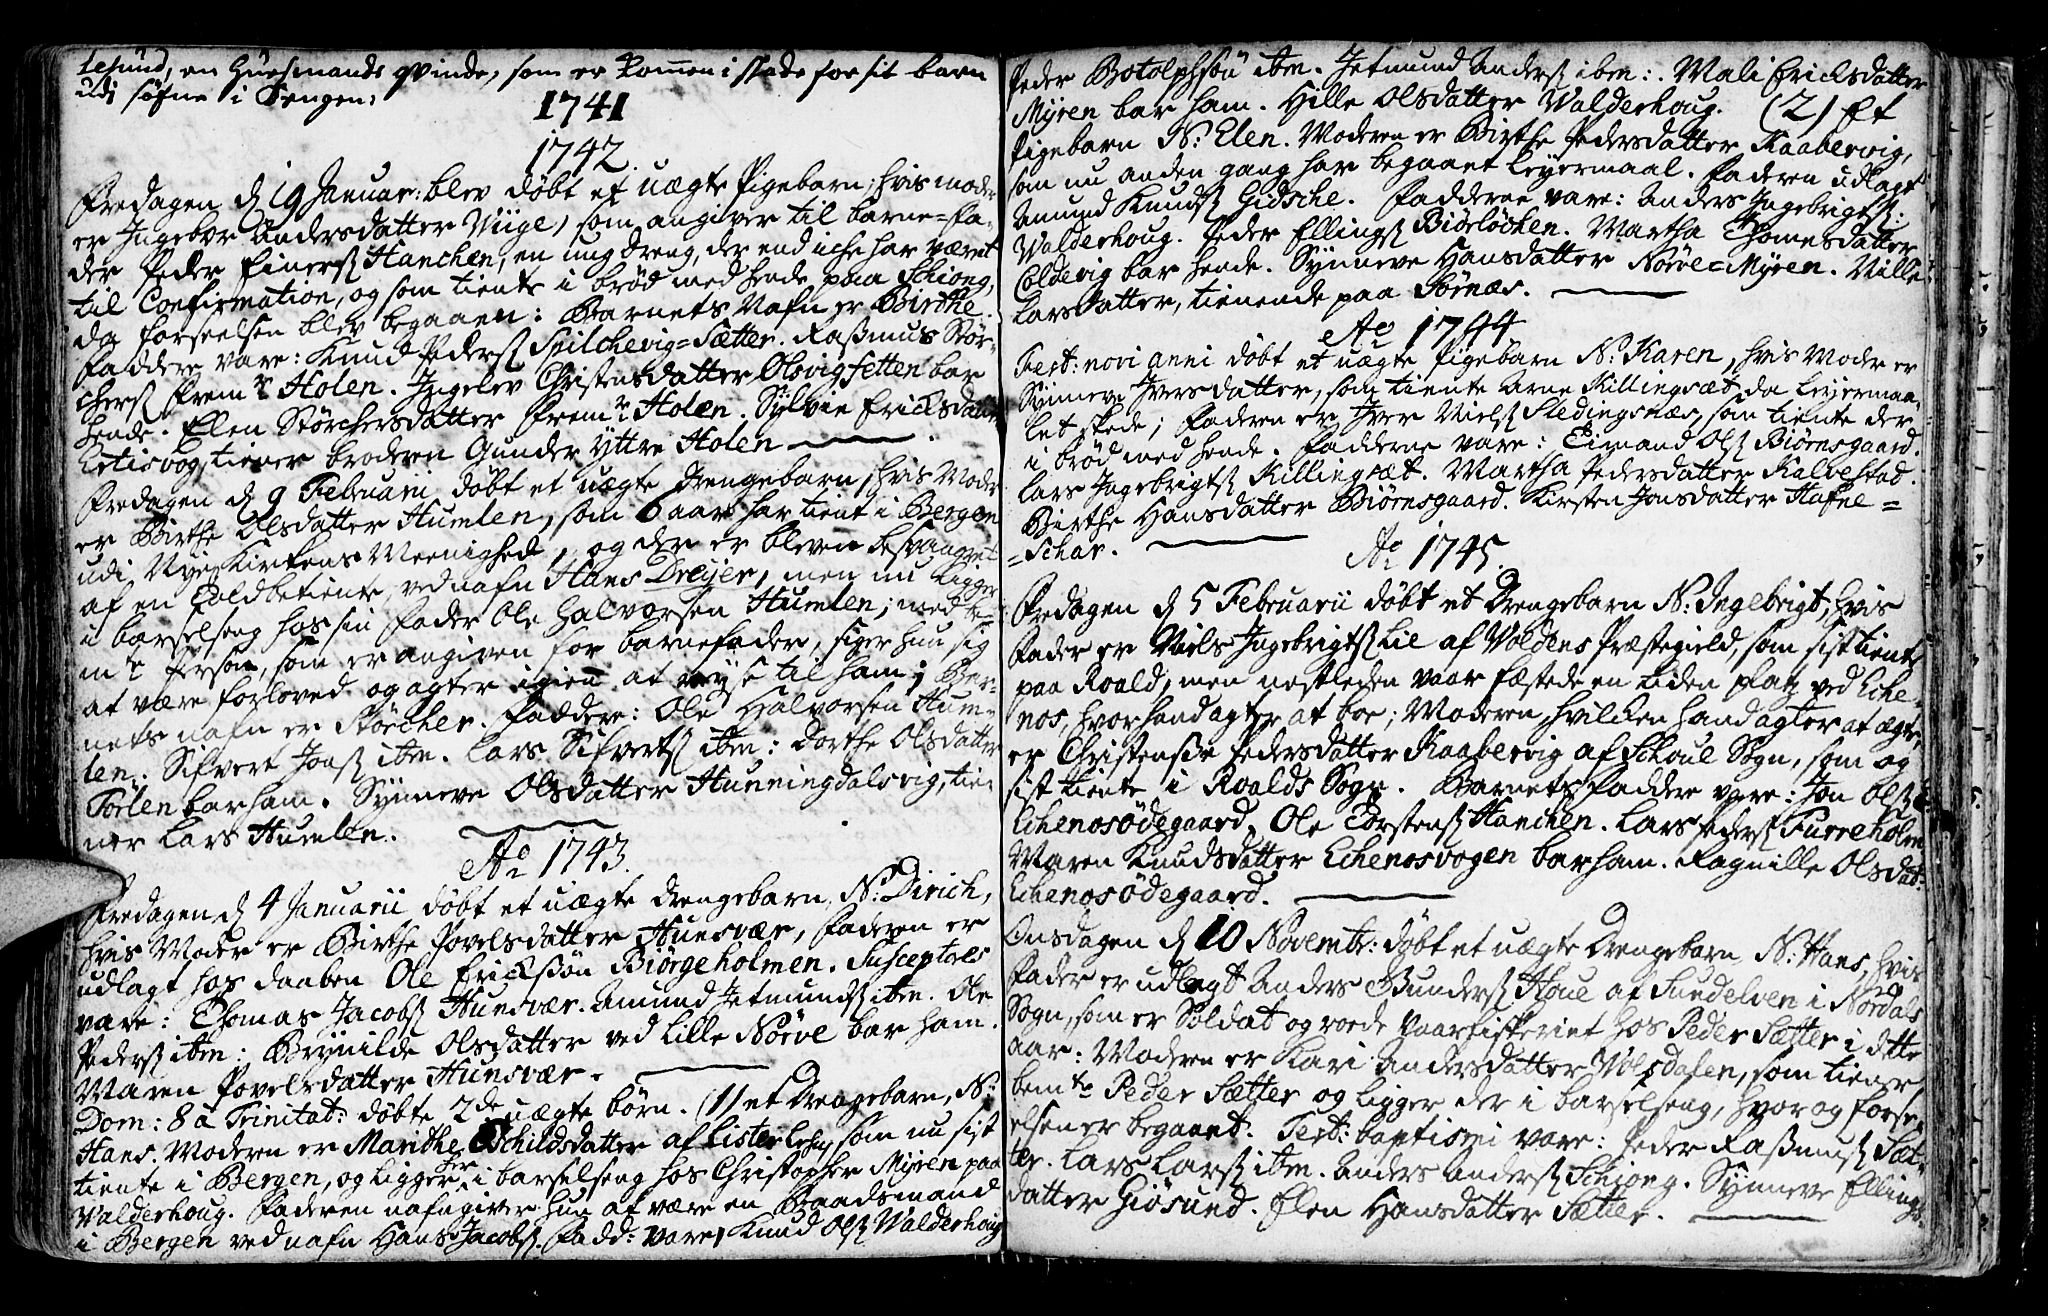 lesund, en Huusmands qvinde, som er kommen i stæde for sit barn
udj söfne i Sengen:
1741
1742.
Fredagen d 19 Januar: blev döbt et uægte Pigebarn, hvis moder
er Ingebor Andersdatter Wiige, som angiver til barne=fa-
der Peder Einers Hanchen, en ung dreng, der end iche har været
til Confirmation, og som tiente i bröd med hende paa Schiong,
da forseelsen blev begaaen: Barnets Nafn er Birthe.
Faddere vare: Knud Peders Spilchevig=Sætter. Rasmus Stör-
chers Frem Holen. Ingelev Christensdatter Olsvigsetten bar
hende. Elen Störchersdatter Frem Holen. Sylvie Ericksdatter
tiener broderen Gunder Yttre Holen
Fredagen d 9 Februarii döbt et uægte drengebarn, hvis Moder
er Birthe Olsdatter Humlen, som 6 aar har tient i Bergen
udi Nyekirkens Meenighed, og der er bleven besvangret
af en Toldbetiente ved nafn Hans Dreyer, men nu ligger
i barselseng hos sin Fader Ole Halvorsen Humlen; med be-
mte Person, som er angiven for barnefader, siger hun sig
at være forloved og agter igien at reyse til ham; Bar-
nets nafn er Störcher. Faddere: Ole Halvorsen Hum-
len. Sifvert Jons ibm. Lars Sifverts ibm: Dorthe Olsdatter
Törlen bar ham. Synneve Olsdatter Hunningdalsvig, tie-
ner Lars Humlen.
Ao 1743.
Fredagen d 4 Januarii döbt et uægte drengebarn N: Dirich,
hvis Moder er Birthe Povelsdatter Hunsvær, Faderen er
udlagt hos daaben Ole Erickssön Biörgeholmen. Susceptores
vare: Thomas Jacobs Hunsvær. Amund Jetmunds ibm. Ole
Peders ibm: Brynilde Olsdatter ved Lille Nörve bar ham.
Maren Povelsdatter Hunsvær.
Dom: 8 a Trinitat: döbte 2de uægte börn. (1) et Drengebarn, N:
Hans. Moderen er Marithe Eschildsdatter af som nu sist
tiente i Bergen, og ligger her i barselseng hos Christopher Myren paa
Valderhoug. Faderen nafngiver hun at være en Baadsmand
i Bergen ved nafn Hans Jacobs. Fadd: vare: Knud Ols Valderhoug
Peder Botolphsön ibm. Jetmund Anders ibm: Mali Ericksdatter
Myren bar ham. Hille Olsdatter Valderhoug. (2) Et
Pigebarn N: Elen. Moderen er Birthe Pedersdatter Kaabervig,
som nu anden gang har begaaet Leyermaal. Faderen udlagt
Amund Knuds Gidsche. Fadderne vare: Anders Ingebrigts:
Valderhoug. Peder Ellings Biörlöchen. Martha Thomesdatter
Coldevig bar hende. Synneve Hansdatter Nörve=Myren. Ville
Larsdatter, tienende paa Törnæs.
Ao 1744
Fest: novi anni döbt et uægte Pigebarn N: Karen, hvis Moder er
Synneve Iversdatter, som tiente Arne Killingsæt, da Leyermaa-
let skede; Faderen er Iver Niels Sledingsnæs, som tiente der
i bröd med hende. Fadderne vare: Eimand Ols Biörnsgaard.
Lars Ingebrigts Killingsæt. Martha Pedersdatter Kalvestad.
Birthe Hansdatter Biörnsgaard. Kirsten Jonsdatter Hafne=
=schar.
Ao 1745.
Fredagen d 5 Februarii döbt et Drengebarn N: Ingebrigt, hvis
Fader er Niels Ingebrigts Lie af Voldens Præstegield, som sist tiente
paa Roald, men nestleden vaar fæstede en liden platz ved Eche-
nos, hvor hand agter at boe; Moderen, hvilken hand agter at ægte,
er Christense Pedersdatter Kaabervig af Schoue Sogn, som og
sist tiente i Roalds Sogn. Barnets Faddere vare: Jon Ols
Echenosödegaard. Ole Torstens Hanchen. Lars Peders Furreholm
Maren Knudsdatter Echenosvogen bar ham. Ragnille Olsdat:
Echenosödegaard.
Onsdagen d 10 Novembr: döbt et uægte Drengebarn N: Hans, hvis
Fader er udlagt Anders Gunders Houe af Sundelven i Nordals
Sogn, som er Soldat og roede Vaarfiskeriet hos Peder Sætter i dette
aar: Moderen er Kari Andersdatter Volsdalen, som tiener
bemte Peder Sætter og ligger der i barselseng, hvor og forse-
elsen er begaaet. Test: baptismi vare: Peder Rasmus Sæt-
ter. Lars Lars ibm. Anders Anders Schiong. Synneve Ellings-
datter Giösund. Elen Hansdatter Sætter.